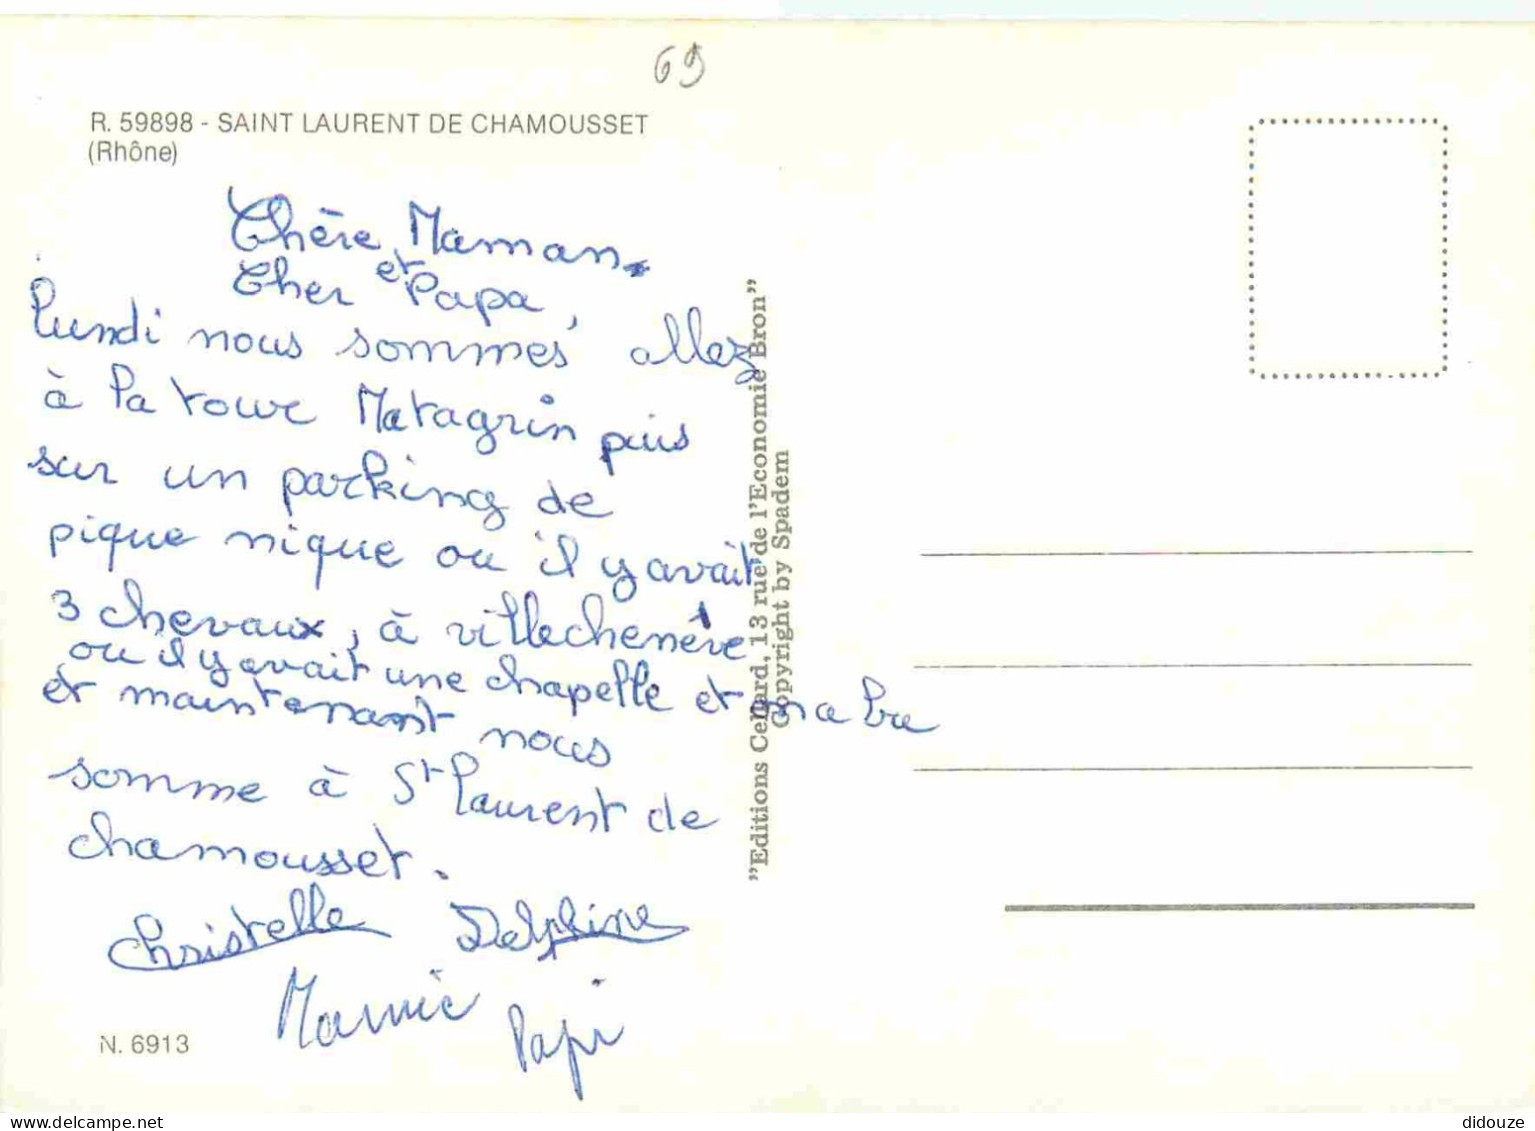 69
R. 59898 - SAINT LAURENT DE CHAMOUSSET
(Rhône)
Chère Maman
et
Cher Papa,
Lundi nous sommes allez
à la tour Matagrin puis
sur un parking de
pique nique ou il y avait
3 chevaux, à villechenève
ou il y avait une chapelle et
et maintenant nous
somme à St Laurent de
chamousset.
Christelle Delphine
Mamie Papi
N. 6913
"Editions Cellard, 13 rue de l'Economie Bron"
Copyright by Spadem
delcampe.net
didouze